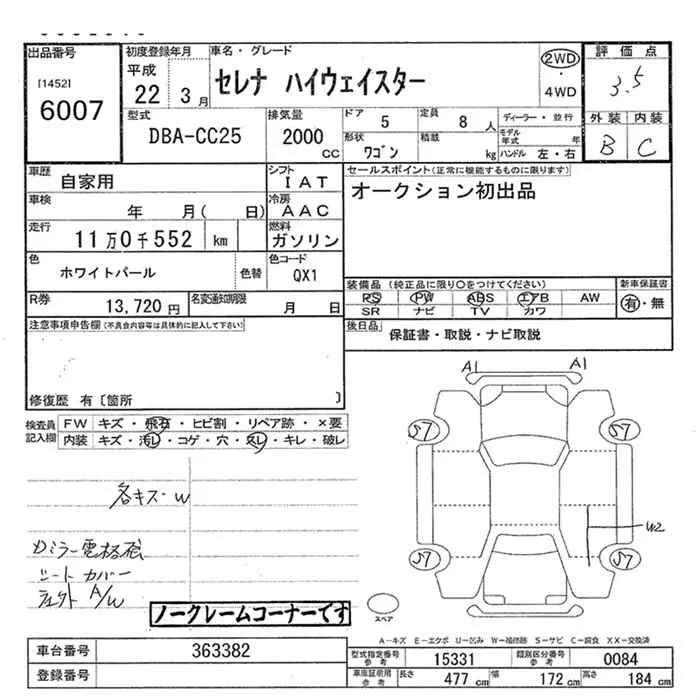 出品番号 初度登録年月 車名・グレード 2WD 評価点
[1452] 平成 セレナ ハイウェイスター ・ 3.5
6007 22 3月 4WD
型式 排気量 ドア 5 定員 8人 ディーラー・並行 外装 内装
DBA-CC25 2000cc 形状 ワゴン 積載 kg モデル年式 年 B C
ハンドル 左・右
車歴 自家用 シフト IAT セールスポイント(正常に機能するものに限ります)
車検 年 月( 日) 冷房 AAC オークション初出品
走行 11万0千552 km 燃料 ガソリン
色 ホワイトパール 色替 色コード QX1
装備品(純正品に限り○をつけてください) 新車保証書
R券 13,720円 名変通知期限 月 日 PS PW ABS エアB AW 有・無
SR ナビ TV カワ
注意事項申告欄(不具合内容等は具体的に記入して下さい) 後日品 保証書・取説・ナビ取説
修復歴 有〔箇所 〕
A1 A1
検査員記入欄 FW キズ・飛石・ヒビ割・リペア跡・×要
内装 キズ・汚レ・コゲ・穴・スレ・キレ・破レ
S7 S7
各キズ・W
W2
S7 S7
シート カバー
A/W
ノークレームコーナーです
スペア
A-キズ E-エクボ U-凹み W-補修跡 S-サビ C-腐食 XX-交換済
車台番号 363382 型式指定番号参考 15331 類別区分番号参考 0084
登録番号 車庫証明用参考 長さ 477cm 幅 172cm 高さ 184cm